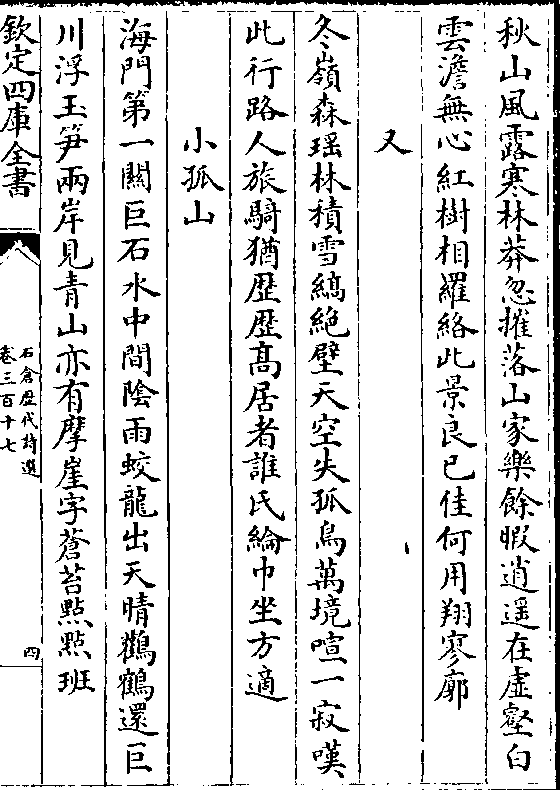 秋山風露寒林莽忽摧落山家樂餘暇逍遥在虚壑白
雲澹無心紅樹相羅絡此景良已佳何用翔寥廓
又
冬嶺森瑶林積雪縞絶壁天空失孤鳥萬境喧一寂嘆
此行路人旅騎猶歴歴髙居者誰氏綸巾坐方適
小孤山
海門第一關巨石水中間陰雨蛟龍出天晴鸛鶴還巨
川浮玉笋兩岸見青山亦有摩崖字蒼苔點點班
欽定四庫全書
石倉歴代詩選
卷三百十七
四